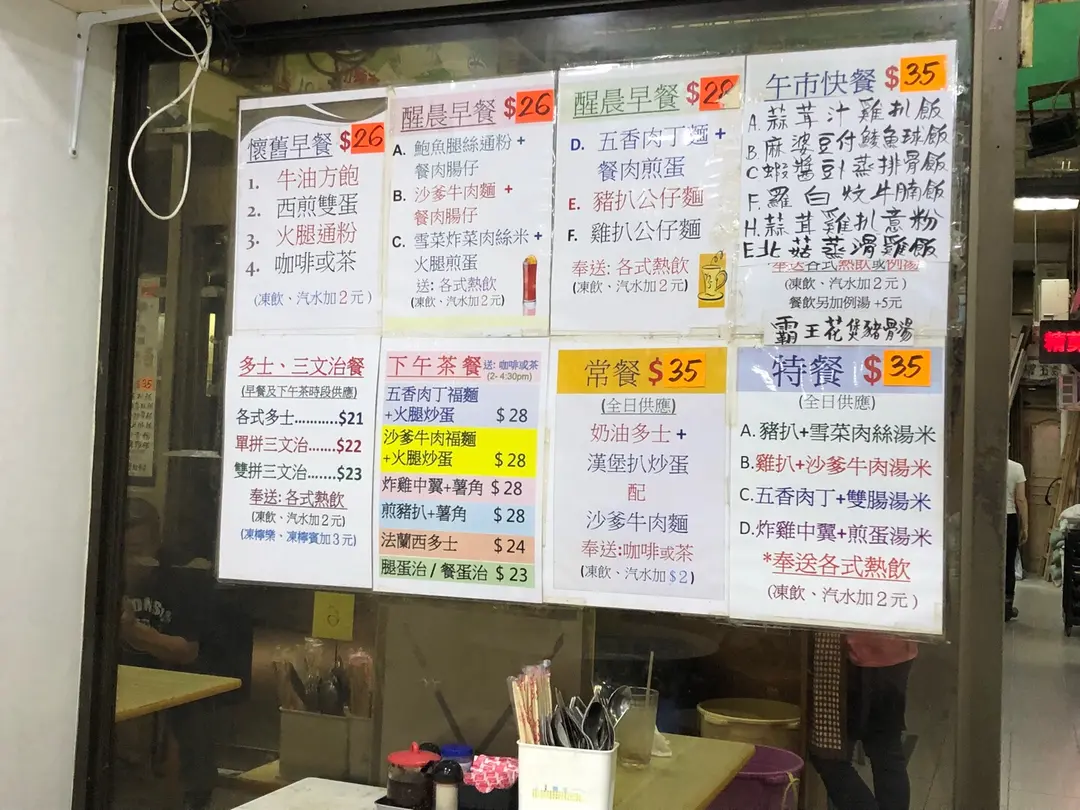 懷舊早餐 $26
1. 牛油方飽
2. 西煎雙蛋
3. 火腿通粉
4. 咖啡或茶
(凍飲、汽水加2元)
醒晨早餐 $26
A. 鮑魚腿絲通粉 +
餐肉腸仔
B. 沙爹牛肉麵 +
餐肉腸仔
C. 雪菜炸菜肉絲米 +
火腿煎蛋
送: 各式熱飲
(凍飲、汽水加2元)
醒晨早餐 $28
D. 五香肉丁麵 +
餐肉煎蛋
E. 豬扒公仔麵
F. 雞扒公仔麵
奉送: 各式熱飲
(凍飲、汽水加2元)
午市快餐 $35
A.蒜茸汁雞扒飯
B.麻婆豆付鯪魚球飯
C蝦醬豆蒸排骨飯
F.羅白炆牛腩飯
H.蒜茸雞扒意粉
E.北菇蒸滑雞飯
奉送各式熱飲或例湯
(凍飲、汽水加2元)
餐飲另加例湯+5元
霸王花煲豬骨湯
多士、三文治餐
(早餐及下午茶時段供應)
各式多士...........$21
單拼三文治.......$22
雙拼三文治.......$23
奉送: 各式熱飲
(凍飲、汽水加2元)
(凍檸樂、凍檸賓加3元)
下午茶餐 送: 咖啡或茶
(2- 4:30pm)
五香肉丁福麵
+火腿炒蛋 $28
沙爹牛肉福麵
+火腿炒蛋 $28
炸雞中翼+薯角 $28
煎豬扒+薯角 $28
法蘭西多士 $24
腿蛋治 / 餐蛋治 $23
常餐 $35
(全日供應)
奶油多士 +
漢堡扒炒蛋
配
沙爹牛肉麵
奉送:咖啡或茶
(凍飲、汽水加$2)
特餐 $35
(全日供應)
A.豬扒+雪菜肉絲湯米
B.雞扒+沙爹牛肉湯米
C.五香肉丁+雙腸湯米
D.炸雞中翼+煎蛋湯米
*奉送各式熱飲
(凍飲、汽水加2元)